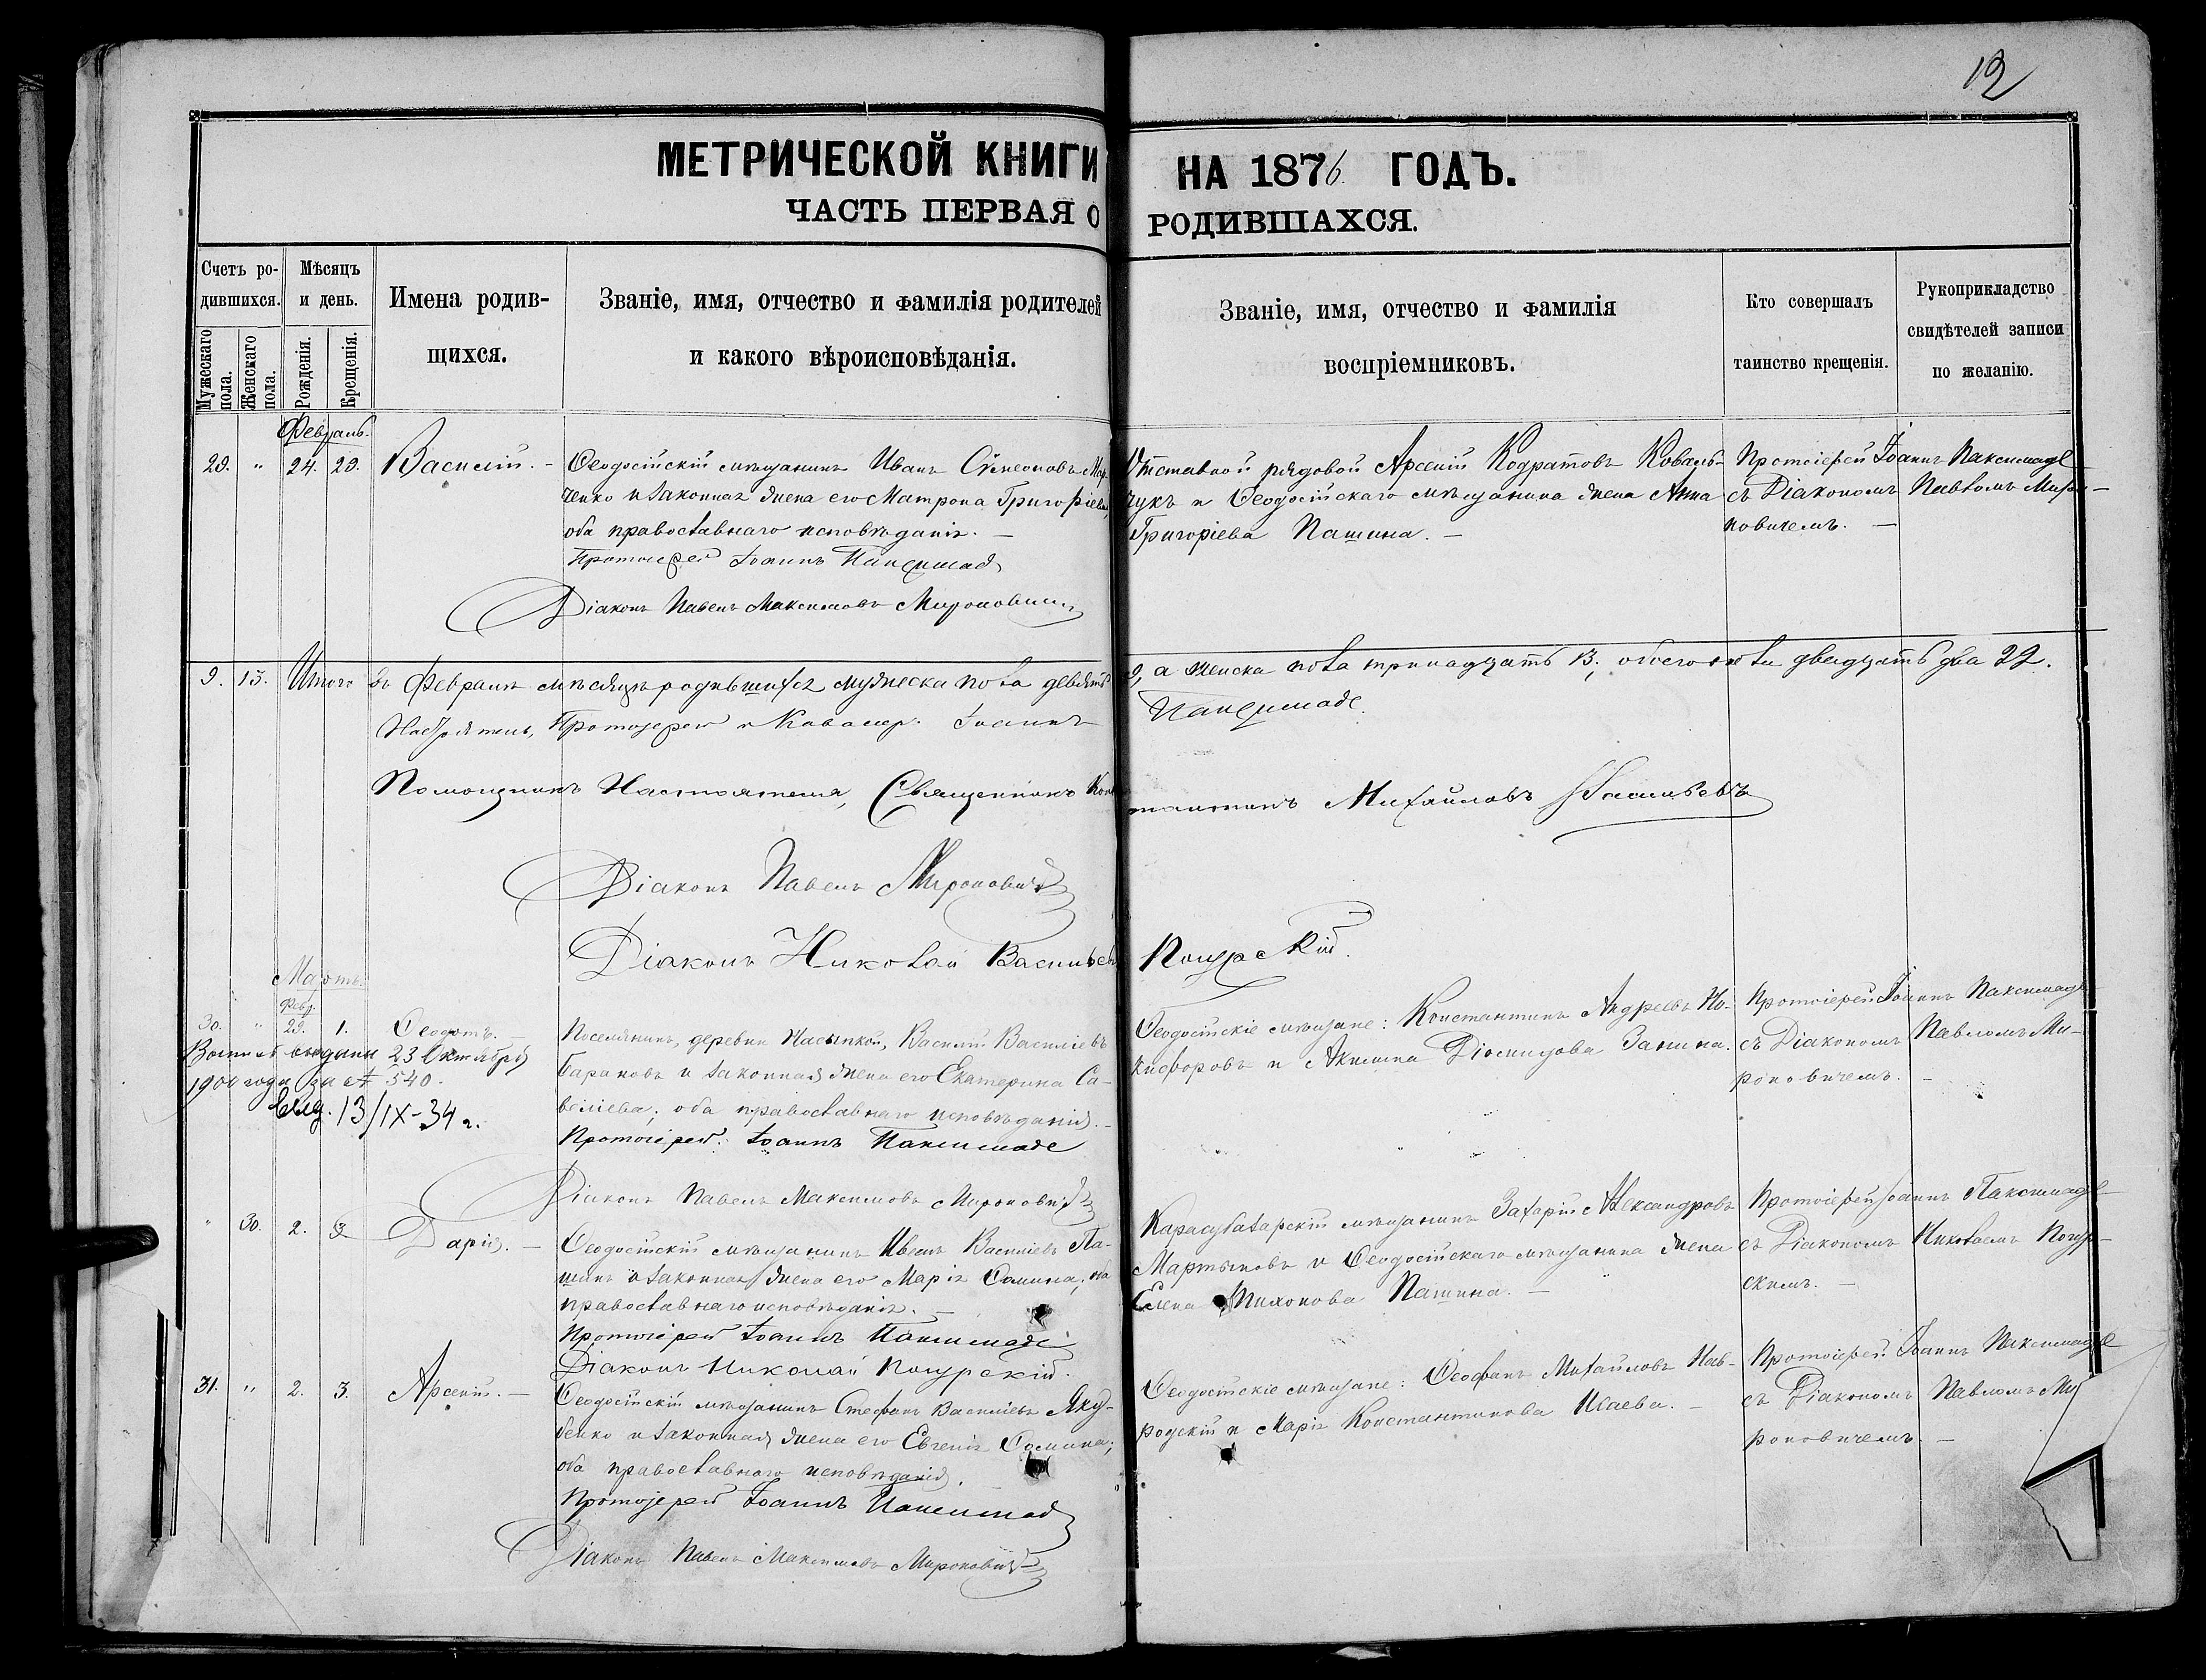 12
МЕТРИЧЕСКОЙ КНИГИ НА 1876 ГОДЪ.
ЧАСТЬ ПЕРВАЯ О РОДИВШАХСЯ.
Счетъ ро-
дившихся.
Мужескаго пола.
Женскаго пола.
Мѣсяцъ
и день.
Рожденія.
Крещенія.
Имена родив-
щихся.
Званіе, имя, отчество и фамилія родителей
и какого вѣроисповѣданія.
Званіе, имя, отчество и фамилія
воспріемниковъ.
Кто совершалъ
таинство крещенія.
Рукоприкладство
свидѣтелей записи
по желанію.
Февраль.
29. " 24. 29. Василій. –
Ѳеодосійскій мѣщанинъ Иванъ Симеоновъ
ченко и законная жена его Матрона Григоріева,
оба православнаго исповѣданія. –
Протоіерей Іоаннъ Паксимаде
Діаконъ Павелъ Максимовъ Мироновичъ
Отставной рядовой Арсеній Кодратовъ Коваль-
чукъ и Ѳеодосійскаго мѣщанина жена Анна
Григоріева Пашина. –
Протоіерей Іоаннъ Паксимаде
съ Діакономъ Павломъ Миро-
новичемъ. –
9. 13. Итого въ Февралѣ мѣсяцѣ родившихся мужеска пола девять 9, а женска пола тринадцать 13, обоего пола двадцать два 22.
Настоятель, Протоіерей и Кавалеръ Іоаннъ Паксимаде.
Помощникъ Настоятеля, Священникъ Константинъ Михайловъ Васильевъ
Діаконъ Павелъ Мироновичъ
Діаконъ Николай Васильевъ Погурскій.
Мартъ.
Февр.
30. " 29. 1. Ѳеодотъ.
Выпись выдана 23 Октября
1900 года за № 540.
Выд. 13/IX-34 г.
Поселянинъ, деревни Насыпкой, Василій Василіевъ
Барановъ и законная жена его Екатерина Са-
веліева; оба православнаго исповѣданія. –
Протоіерей Іоаннъ Паксимаде
Діаконъ Павелъ Максимовъ Мироновичъ
Ѳеодосійскіе мѣщане: Константинъ Андреевъ Ни-
кифоровъ и Акилина Діомидова Занина.
Протоіерей Іоаннъ Паксимаде
съ Діакономъ Павломъ Ми-
роновичемъ. –
" 30. 2. 3. Дарія. –
Ѳеодосійскій мѣщанинъ Иванъ Василіевъ Па-
шинъ и законная жена его Марія Ѳомина; оба
православнаго исповѣданія. –
Протоіерей Іоаннъ Паксимаде
Діаконъ Николай Погурскій.
Карасубазарскій мѣщанинъ Захарій Александровъ
Мартыновъ и Ѳеодосійскаго мѣщанина жена
Елена Тихонова Пашина. –
Протоіерей Іоаннъ Паксимаде
съ Діакономъ Николаемъ Погур-
скимъ. –
31. " 2. 3. Арсеній. –
Ѳеодосійскій мѣщанинъ Стефанъ Василіевъ Яку-
бенко и законная жена его Евгенія Ѳомина;
оба православнаго исповѣданія.
Протоіерей Іоаннъ Паксимаде
Діаконъ Павелъ Максимовъ Мироновичъ
Ѳеодосійскіе мѣщане: Ѳеофанъ Михайловъ Нав-
родскій и Марія Константинова Исаева. –
Протоіерей Іоаннъ Паксимаде
съ Діакономъ Павломъ Ми
роновичемъ. –